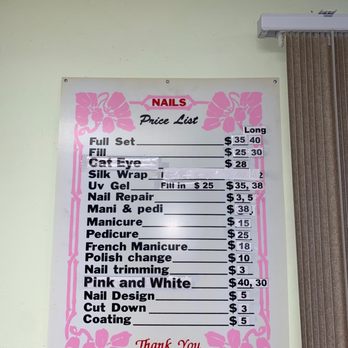 NAILS
Price List
Long
Full Set $ 35 40
Fill $ 25 30
Cat Eye $ 28
Silk Wrap
Uv Gel Fill in $ 25 $ 35, 38
Nail Repair $ 3, 5
Mani & pedi $ 38
Manicure $ 15
Pedicure $ 25
French Manicure $ 18
Polish change $ 10
Nail trimming $ 3
Pink and White $40, 30
Nail Design $ 5
Cut Down $ 3
Coating $ 5
Thank You